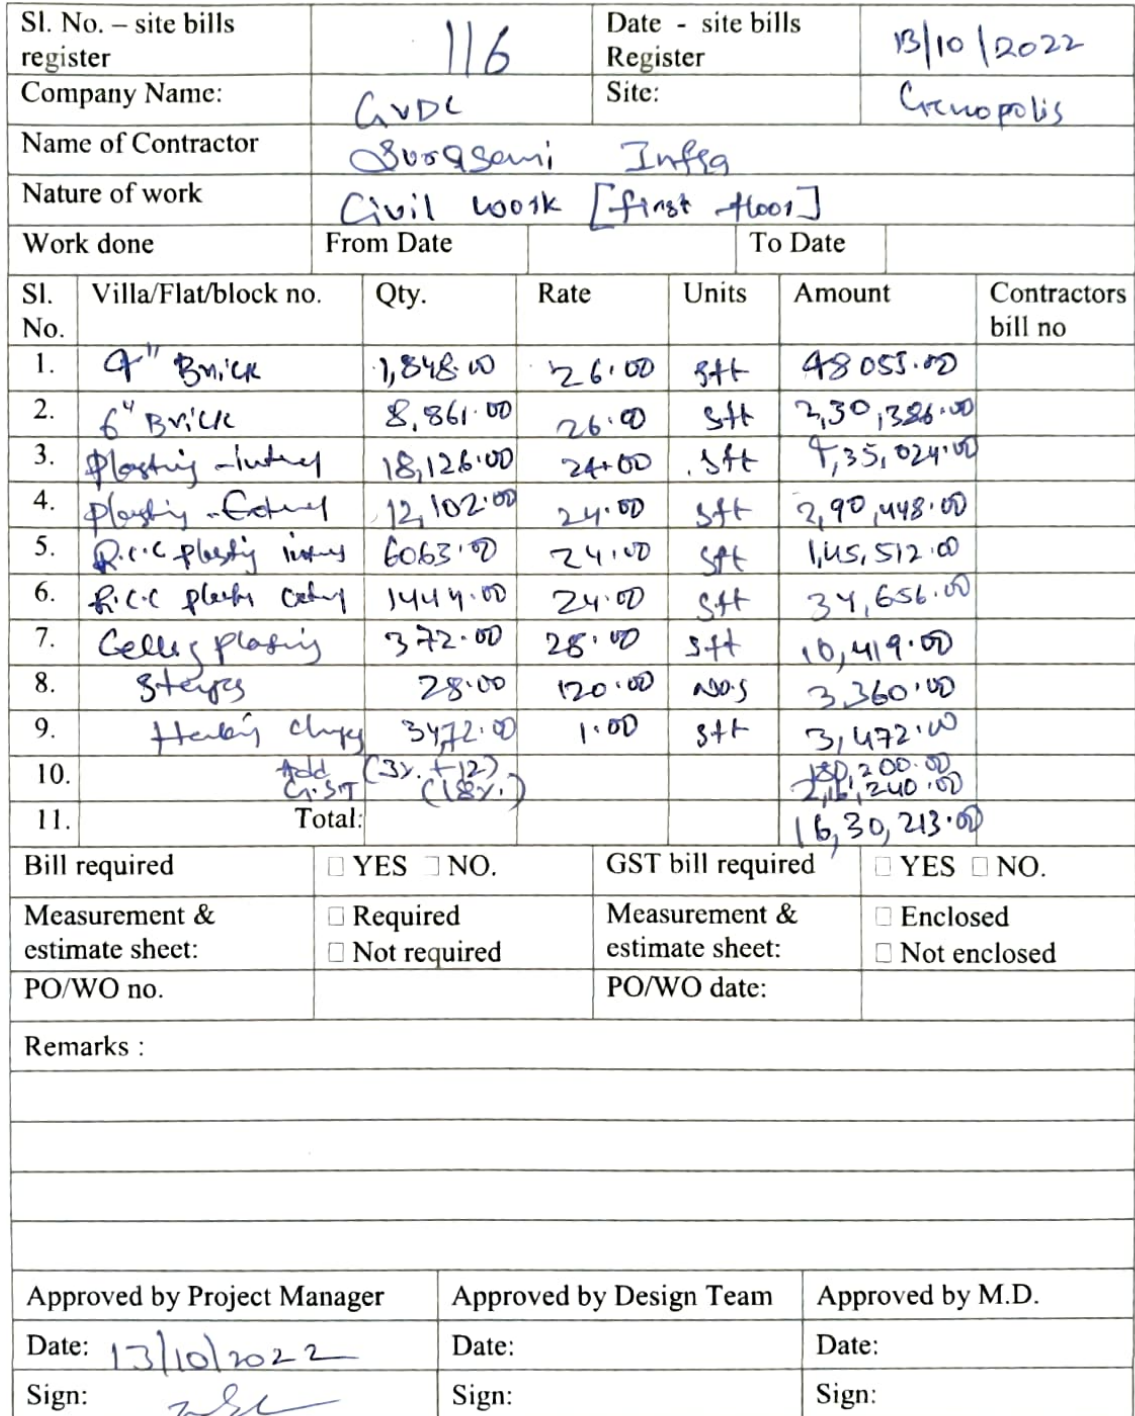 Sl. No. – site bills register 116 Date - site bills Register 13/10/2022
Company Name: GVDC Site: Genopolis
Name of Contractor Infra
Nature of work Civil work [first floor]
Work done From Date To Date
Sl. No. Villa/Flat/block no. Qty. Rate Units Amount Contractors bill no
1. 4" Brick 1,848.00 26.00 sft 48055.00
2. 6" Brick 8,861.00 26.00 sft 2,30,386.00
3. 18,126.00 24.00 sft 4,35,024.00
4. 12,102.00 24.00 sft 2,90,448.00
5. R.C.C 6063.00 24.00 sft 1,45,512.00
6. R.C.C 1444.00 24.00 sft 34,656.00
7. 372.00 28.00 sft 10,419.00
8. 28.00 120.00 Nos 3,360.00
9. 3472.00 1.00 sft 3,472.00
10. Add (3%.+12) 180,200.00
G.ST (18%.) 2,16,240.00
11. Total: 16,30,213.00
Bill required YES NO. GST bill required YES NO.
Measurement & estimate sheet: Required Not required Measurement & estimate sheet: Enclosed Not enclosed
PO/WO no. PO/WO date:
Remarks :
Approved by Project Manager Approved by Design Team Approved by M.D.
Date: 13/10/2022 Date: Date:
Sign: Sign: Sign: